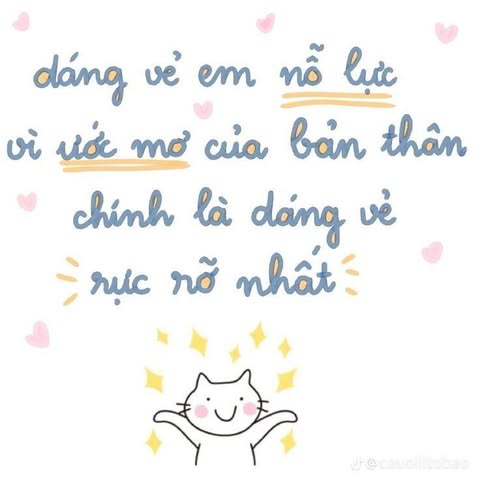 dáng vẻ em nỗ lực
vì ước mơ của bản thân
chính là dáng vẻ
rực rỡ nhất